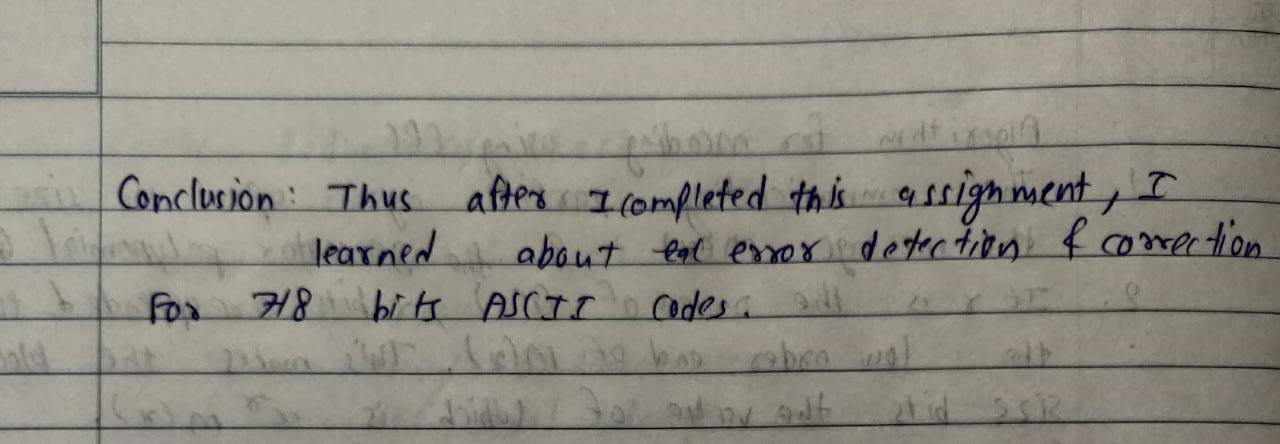 Conclusion: Thus after I completed this assignment, I
learned about error detection & correction
For 7/8 bits ASCII codes.